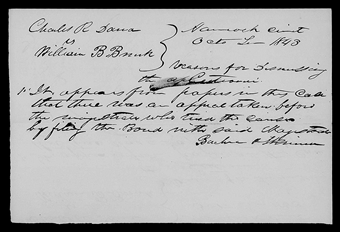 Charles R Dana
vs
William B Brink
Hancock Circt
Octo T— 1843
reasons for dismissing
the appeal
1st It appears from papers in the case
that there was an appeal taken before
the magistrate who tried the cause
by filing the Bond with said Magistrate
Barker &